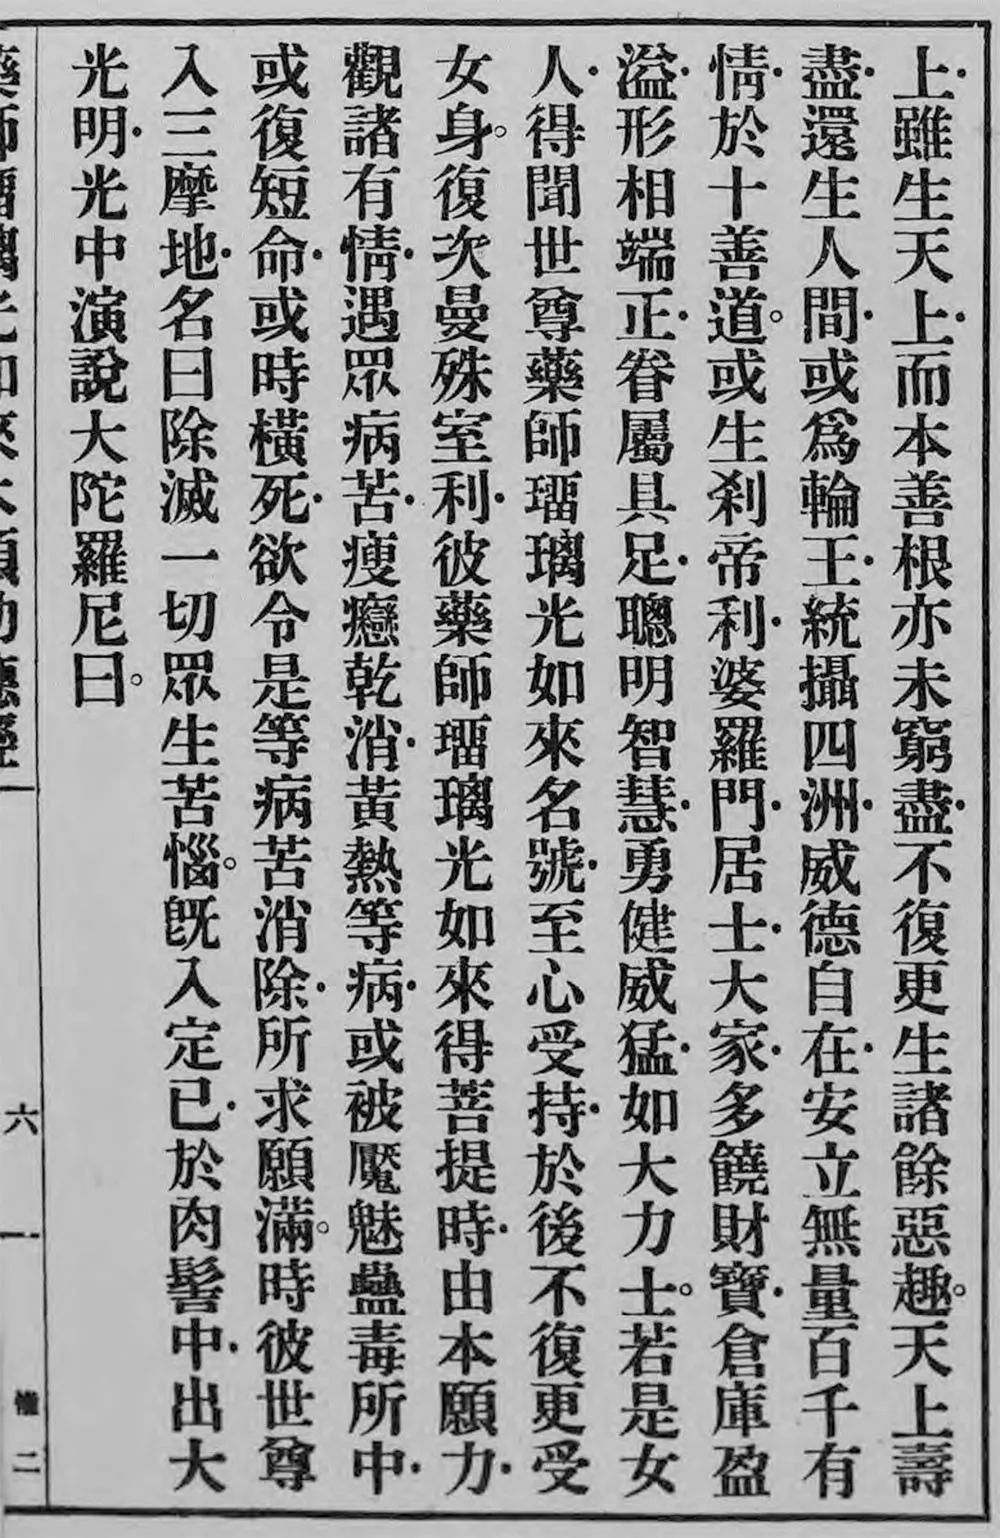 上·雖生天上·而本善根亦未窮盡·不復更生諸餘惡趣。天上壽
盡·還生人間·或爲輪王·統攝四洲·威德自在·安立無量百千有
情·於十善道。或生刹帝利·婆羅門·居士·大家·多饒財寶·倉庫盈
溢·形相端正·眷屬具足·聰明智慧·勇健威猛·如大力士。若是女
人·得聞世尊藥師瑠璃光如來名號·至心受持·於後不復更受
女身。復次曼殊室利·彼藥師瑠璃光如來得菩提時·由本願力·
觀諸有情·遇眾病苦·瘦㿍乾消·黃熱等病·或被魘魅蠱毒所中·
或復短命·或時橫死·欲令是等病苦消除·所求願滿。時彼世尊
入三摩地·名曰除滅一切眾生苦惱。旣入定已·於肉髻中·出大
光明·光中演說大陀羅尼曰。
藥師瑠璃光如來本願功德經
六
二